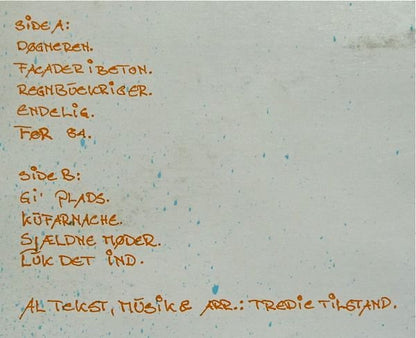 SIDE A:
DØGNEREN.
FACADER I BETON.
REGNBUEKRIGER.
ENDELIG.
FØR 84.
SIDE B:
GI' PLADS.
KUFARNACHE.
SJÆLDNE MØDER.
LUK DET IND.
AL TEKST, MUSIK & ARR.: TREDIE TILSTAND.